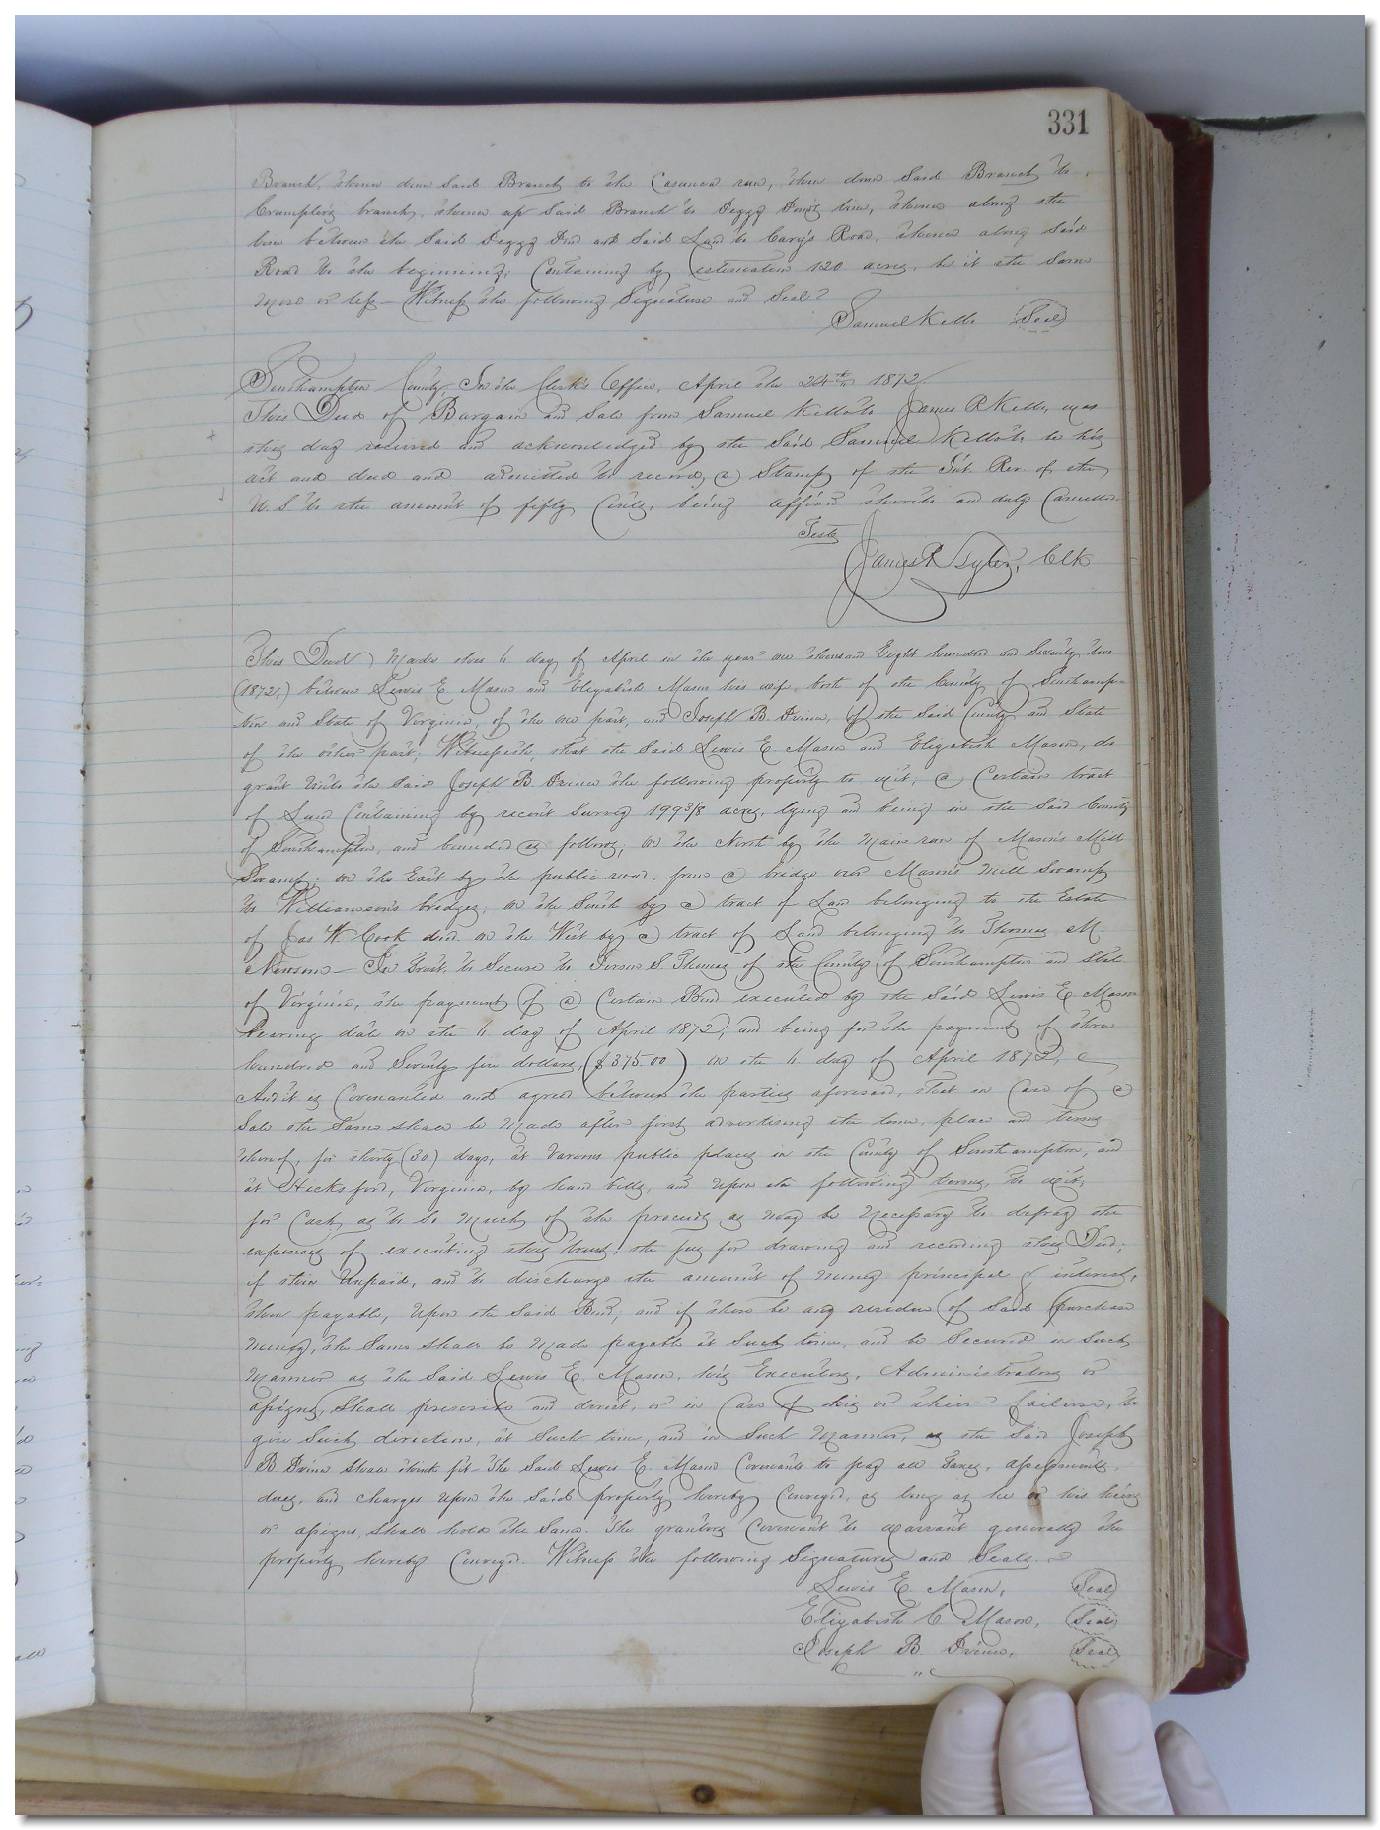 331
Branch, thence down Said Branch to the run, thence down Said Branch to
branch, thence up Said Branch to Peggy line, thence along the
line between the Said Peggy and Said Land to Cary's Road, thence along Said
Road to the beginning, Containing by estimation 120 acres, be it the Same
more or less — Witness the following Signature and Seal
Samuel Kello (Seal)
Southampton County, In the Clerk's Office, April the 24th 1872.
This Deed of Bargain and Sale from Samuel Kello to James R Kello, was
this day received and acknowledged by the Said Samuel Kello to be his
act and deed and admitted to record, a Stamp of the Int. Rev. of the
U.S. to the amount of fifty Cents, being affixed thereto and duly Cancelled.
Teste
James R Tyler, Clk
This Deed Made this 4 day of April in the year one thousand Eight hundred and Seventy two
(1872,) between Lewis E. Mason and Elizabeth Mason his wife, both of the County of Southamp-
ton and State of Virginia, of the one part, and Joseph B. Prince, of the Said County and State
of the other part; Witnesseth, that the Said Lewis E Mason and Elizabeth Mason, do
grant unto the Said Joseph B Prince the following property to wit; a Certain tract
of Land Containing by recent Survey 199 3/8 acres, lying and being in the Said County
of Southampton, and bounded as follows; on the North by the main run of Mason's Mill
Swamp; on the East by the public road from a bridge over Mason's Mill Swamp
to Williamson's bridge, on the South by a tract of Land belonging to the Estate
of Jas W. Cook decd. on the West by a tract of Land belonging to Thomas M.
Newsom — In Trust, to Secure to S. Thomas of the County of Southampton and State
of Virginia, the payment of a Certain Bond executed by the Said Lewis E Mason
bearing date on the 4 day of April 1872, and being for the payment of three
hundred and Seventy five dollars, ($375.00) on the 4 day of April
And it is Covenanted and agreed between the parties aforesaid, that in Case of a
Sale the Same shall be Made after first advertising the time, place and terms
thereof, for thirty (30) days, at various public places in the County of Southampton, and
at Hicksford, Virginia, by hand bills, and upon the following terms, to wit;
for Cash, as to so Much of the proceeds as may be Necessary to defray the
expenses of executing this trust, the fees for drawing and recording this Deed;
if then Unpaid, and to discharge the amount of money principal & interest,
then payable, upon the Said Bond; and if there be any residue of Said purchase
money, the Same shall be Made payable at Such time, and be Secured in Such
Manner as the Said Lewis E. Mason, his Executors, Administrators or
assigns, Shall prescribe and direct, or in Case of his or their failure, to
give Such direction, at Such time, and in Such Manner, as the Said Joseph
B Prince Shall think fit — The Said Lewis E. Mason Covenants to pay all Taxes, assessments,
dues, and charges upon the Said property hereby Conveyed, as long as he or his heirs
or assigns, Shall hold the Same. The grantors Covenant to warrant generally the
property hereby Conveyed. Witness the following Signatures and Seals.
Lewis E. Mason, (Seal)
Elizabeth C Mason, (Seal)
Joseph B. Prince, (Seal)